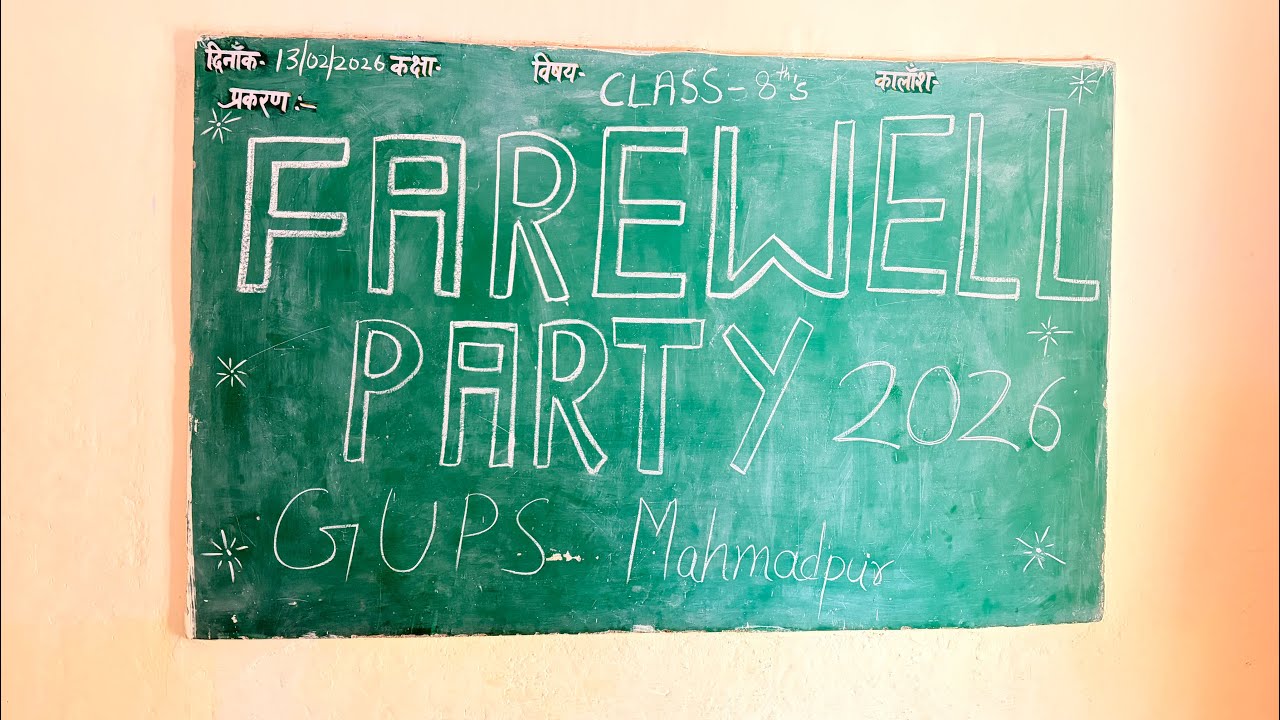 दिनाँक- 13/02/2026 कक्षा- विषय- कालाँश-
प्रकरण :-
CLASS - 8th's
FAREWELL
PARTY 2026
GUPS... Mahmadpur